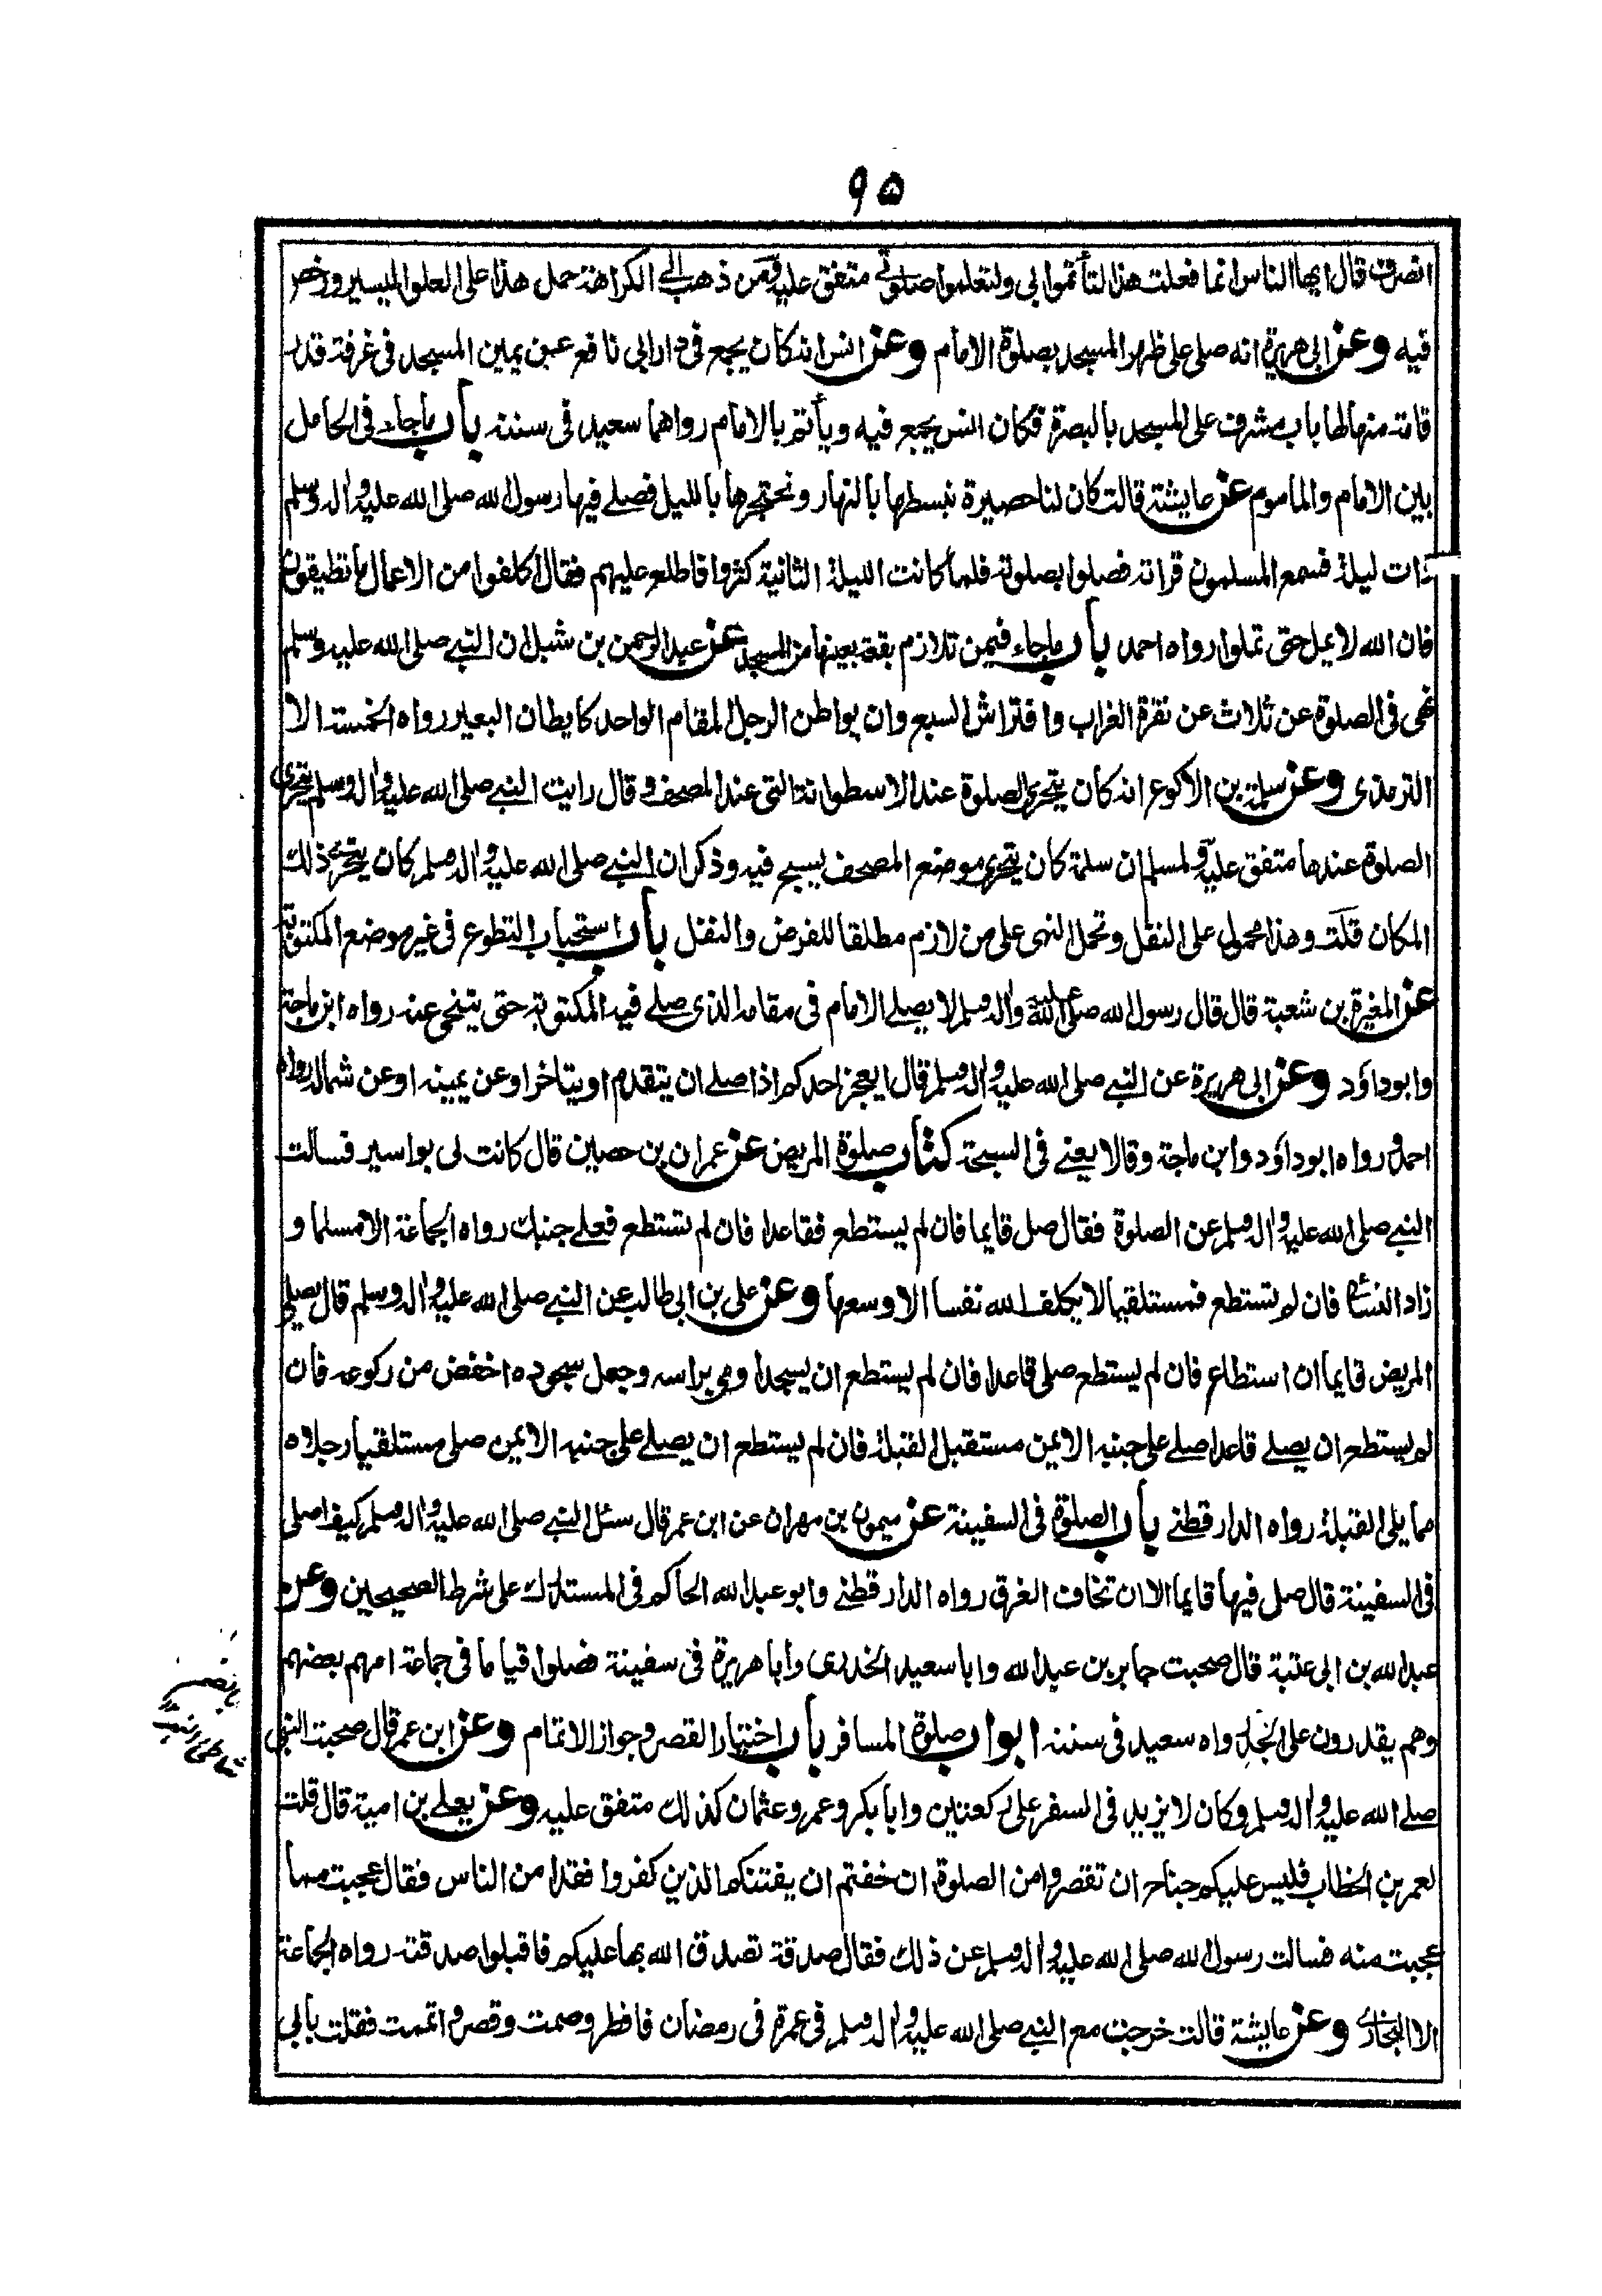 ٩٥
انصرف قال ايها الناس انما فعلت هذا لتأتموا بى ولتعلموا صلوتى متفق عليه ومن ذهب الى الكراهة حمل هذا على العلو اليسير ورخص
فيه وعن ابى هريرة انه صلى على ظهر المسجد بصلوة الامام وعن انس انه كان يجمع فى دار ابى نافع عن يمين المسجد فى غرفة قدر
قامة منها لها باب مشرف على المسجد بالبصرة فكان انس يجمع فيه ويأتم بالامام رواهما سعيد فى سننه باب ماجاء فى الحامل
بين الامام والماموم عن عايشة قالت كان لنا حصيرة نبسطها بالنهار ونحتجرها بالليل فصلے فيها رسول الله صلى الله عليه واله وسلم
ذات ليلة فسمع المسلمون قراته فصلوا بصلوته فلما كانت الليلة الثانية كثروا فاطلع عليهم فقال اكلفوا من الاعمال ما تطيقون
فان الله لا يمل حتى تملوا رواه احمد باب ماجاء فيمن تلازم بقعة بعينها من المسجد عن عبد الرحمن بن شبل ان النبے صلى الله عليه وسلم
نهى فى الصلوة عن ثلاث عن نقرة الغراب وافتراش السبع وان يواطن الرجل المقام الواحد كايطان البعير رواه الخمسة الا
الترمذى وعن سلمة بن الاكوع انه كان يتحرى الصلوة عند الاسطوانة التى عند المصحف وقال رايت النبے صلى الله عليه واله وسلم يتحرى
الصلوة عندها متفق عليه ولمسلم ان سلمة كان يتحرى موضع المصحف يسبح فيه وذكر ان النبے صلى الله عليه واله وسلم كان يتحرى ذلك
المكان قلت وهذا محمول على النفل وتحمل النهى على من لازم مطلقا للفرض والنفل باب استحباب التطوع فى غير موضع المكتوبة
عن المغيرة بن شعبة قال قال رسول الله صلى الله عليه واله وسلم لا يصلے الامام فى مقامه الذى صلے فيه المكتوبة حتى يتنحى عنه رواه ابن ماجة
وابوداؤد وعن ابى هريرة عن النبے صلى الله عليه واله وسلم قال ايعجز احدكم اذا صلے ان يتقدم او يتاخر او عن يمينه او عن شماله رواه
احمد ورواه ابوداؤد وابن ماجة وقالا يعنے فى السبحة كتاب صلوة المريض عن عمران بن حصين قال كانت لى بواسير فسالت
النبے صلى الله عليه واله وسلم عن الصلوة فقال صل قايما فان لم يستطع فقاعدا فان لم تستطع فعلے جنبك رواه الجماعة الا مسلما و
زاد النسائى فان لم تستطع فمستلقيا لا يكلف الله نفسا الا وسعها وعن على بن ابى طالب عن النبے صلى الله عليه واله وسلم قال يصلى
المريض قايما ان استطاع فان لم يستطع صلى قاعدا فان لم يستطع ان يسجد اومى براسه وجعل سجوده اخفض من ركوعه فان
لم يستطع ان يصلے قاعدا صلے على جنبه الايمن مستقبل القبلة فان لم يستطع ان يصلے على جنبه الايمن صلى مستلقيا رجلاه
مما يلى القبلة رواه الدارقطنے باب الصلوة فى السفينة عن ميمون بن مهران عن ابن عمر قال سئل النبے صلى الله عليه واله وسلم كيف اصلى
فى السفينة قال صل فيها قايما الا ان تخاف الغرق رواه الدارقطنے وابو عبد الله الحاكم فى المستدرك على شرط الصحيحين وعن
عبد الله بن ابى عتبة قال صحبت جابر بن عبد الله وابا سعيد الخدرى وابا هريرة فى سفينة فصلوا قياما فى جماعة امهم بعضهم
وهم يقدرون على الجد رواه سعيد فى سننه ابواب صلوة المسافر باب اختيار القصر وجواز الاتمام وعن ابن عمر قال صحبت النبى
صلے الله عليه واله وسلم وكان لا يزيد فى السفر على ركعتين وابا بكر وعمر وعثمان كذلك متفق عليه وعن يعلے بن امية قال قلت
لعمر بن الخطاب فليس عليكم جناح ان تقصروا من الصلوة ان خفتم ان يفتنكم الذين كفروا فقد امن الناس فقال عجبت مما
عجبت منه فسالت رسول الله صلى الله عليه واله وسلم عن ذلك فقال صدقة تصدق الله بها عليكم فاقبلوا صدقته رواه الجماعة
الا البخارى وعن عايشة قالت خرجت مع النبے صلى الله عليه واله وسلم فى عمرة فى رمضان فافطر وصمت وقصر واتممت فقلت بابى